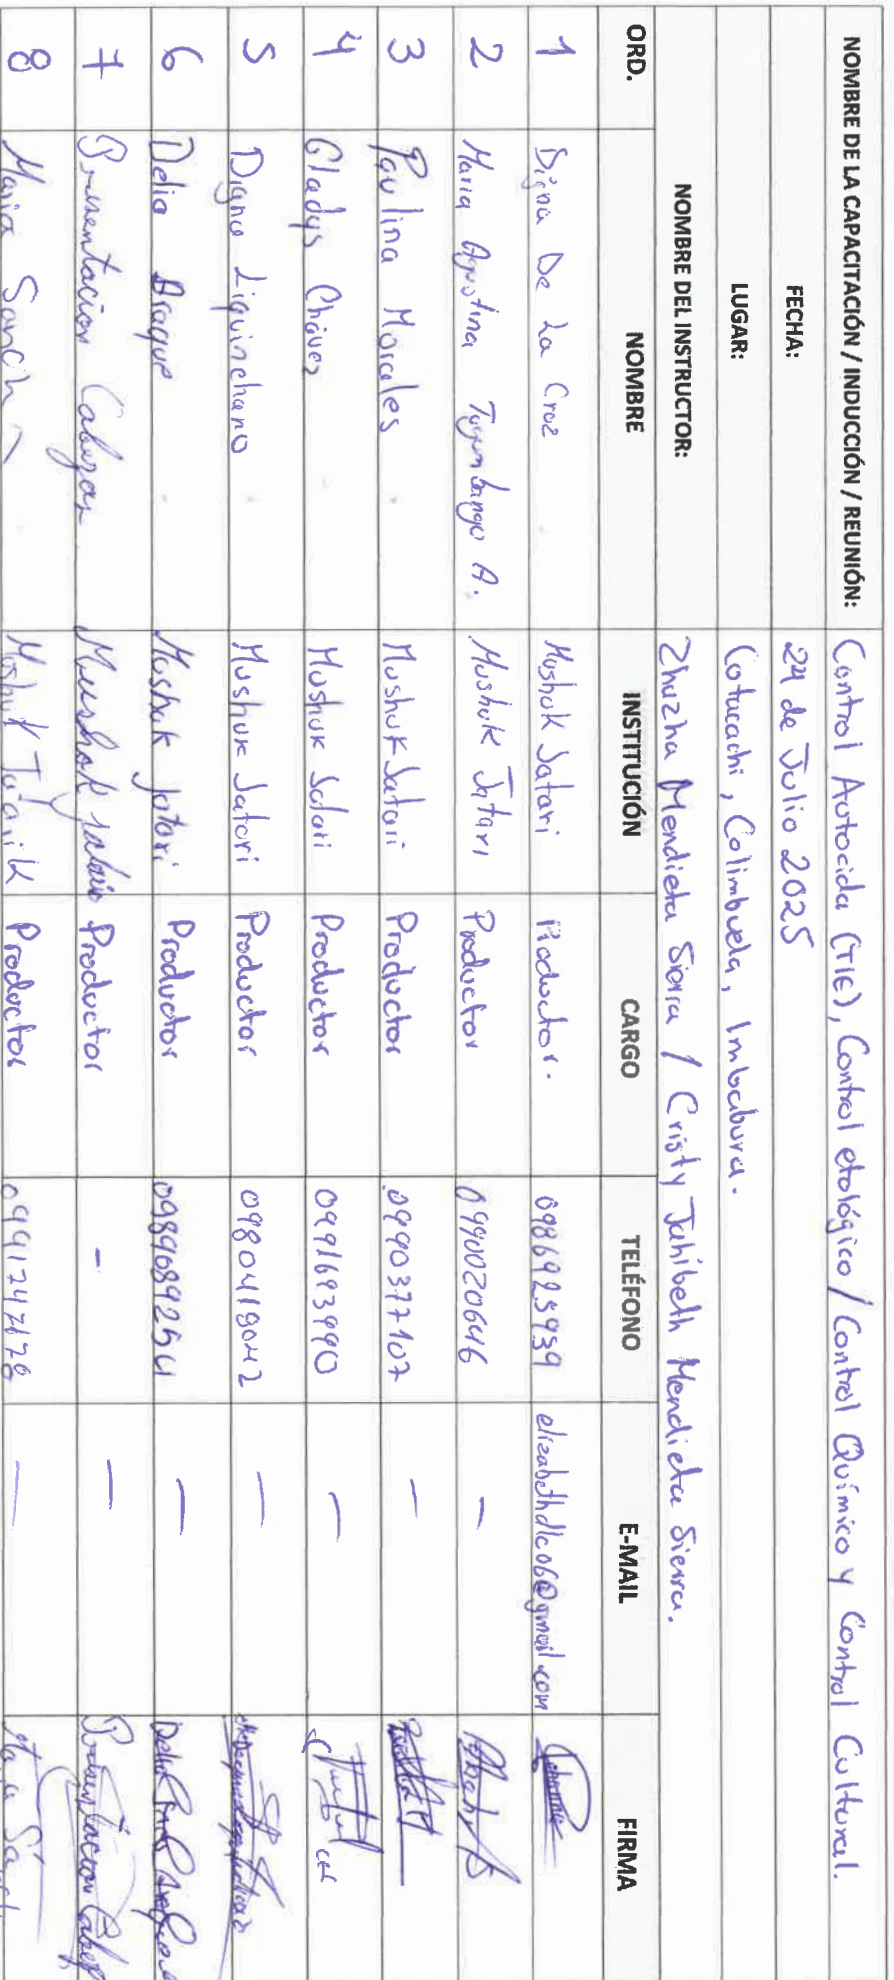 NOMBRE DE LA CAPACITACIÓN / INDUCCIÓN / REUNIÓN: Control Autocida (TIE), Control etológico / Control Químico y Control Cultural.
FECHA: 24 de Julio 2025
LUGAR: Cotacachi, Colimbuela, Imbabura.
NOMBRE DEL INSTRUCTOR: Zhuzha Mendieta Sierra / Cristy Jahibeth Mendieta Sierra.
ORD. NOMBRE INSTITUCIÓN CARGO TELÉFONO E-MAIL FIRMA
1 Digna De La Cruz Mushuk Jatari Productor. 0986925939 elizabethdlc06@gmail.com
2 Maria Agustina A. Mushuk Jatari Productor 0990020646 -
3 Paulina Morales Mushuk Jatari Productor 0990377107 -
4 Gladys Chávez Mushuk Jatari Productor 0991693990 -
5 Digna Liquinchano Mushuk Jatari Productor 0980418042 -
6 Delia Araque Mushuk Jatari Productor 0989089254 -
7 Presentacion Cabezas Mushuk Productor - - Presentacion
8 Maria Mushuk Productor -